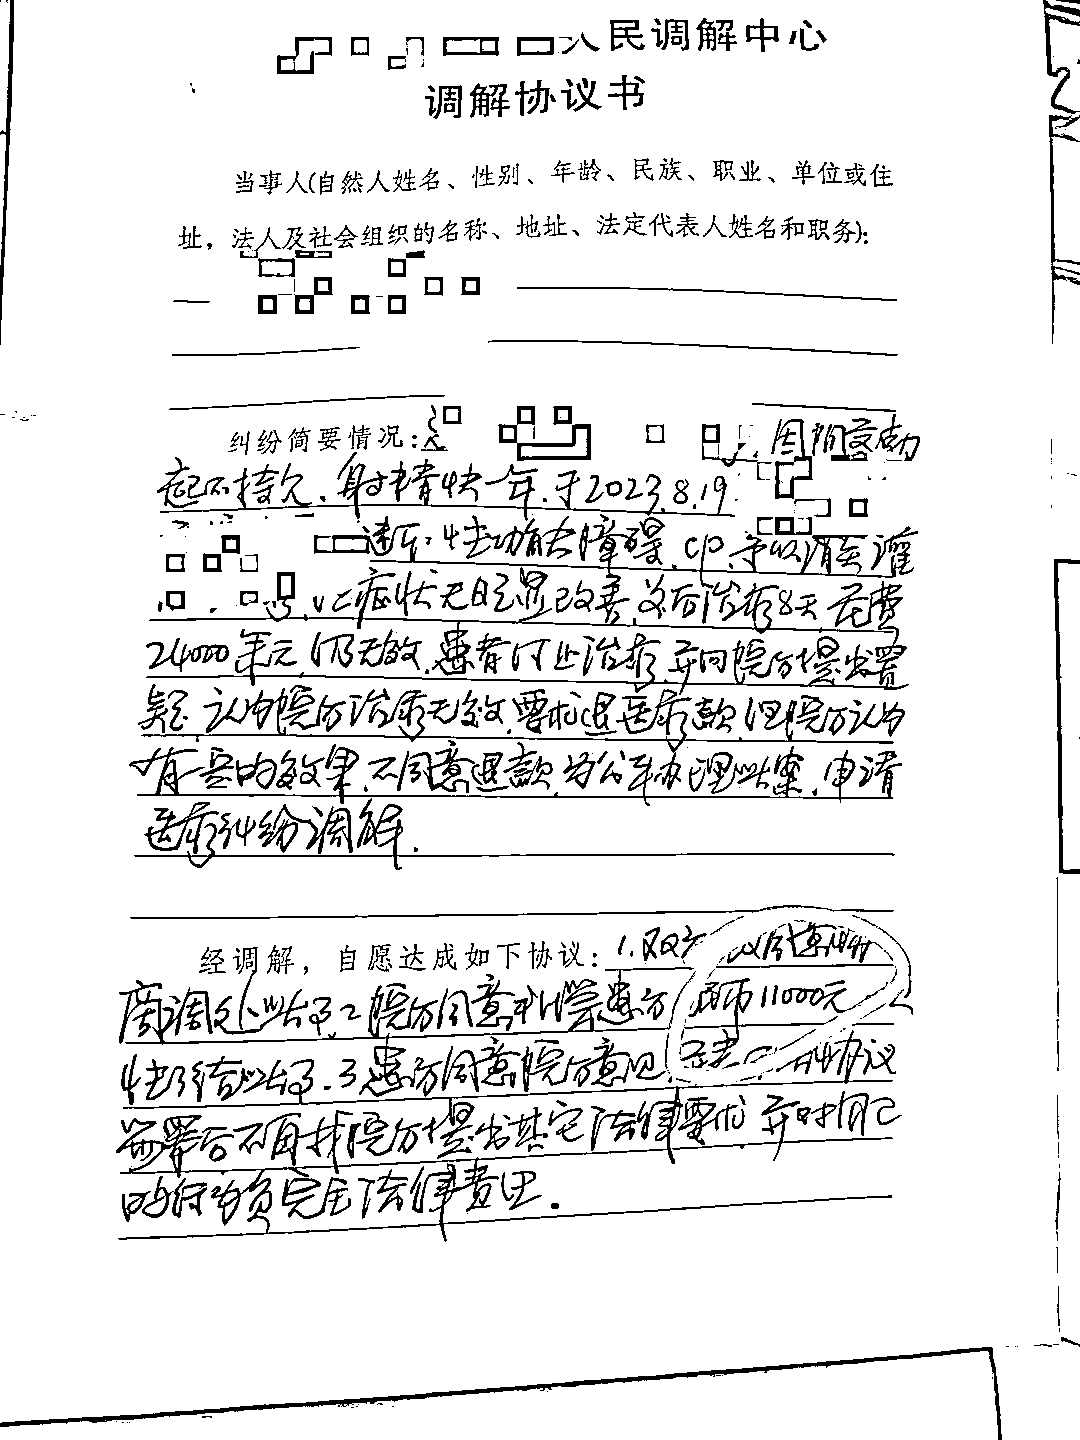 人民调解中心
调解协议书
当事人(自然人姓名、性别、年龄、民族、职业、单位或住
址，法人及社会组织的名称、地址、法定代表人姓名和职务):
纠纷简要情况: 因阴茎勃
起不持久、射精快一年,于2023.8.19
性功能障碍、CP、予以消炎灌
症状无明显改善,前后治疗8天,花费
24000余元,仍无效,患者停止治疗,并向院方提出置
疑,认为院方治疗无效,要求退医疗款,但院方认为
有一定的效果,不同意退款,为公平办理此案,申请
医疗纠纷调解.
经调解，自愿达成如下协议: 1.双方
调处此纠 2.院方同意补偿患方 币11000元
性了结此纠. 3.患方同意院方意见, 协议
签署后不再找院方提出其它法律要求,并对自己
的行为负完全法律责任.